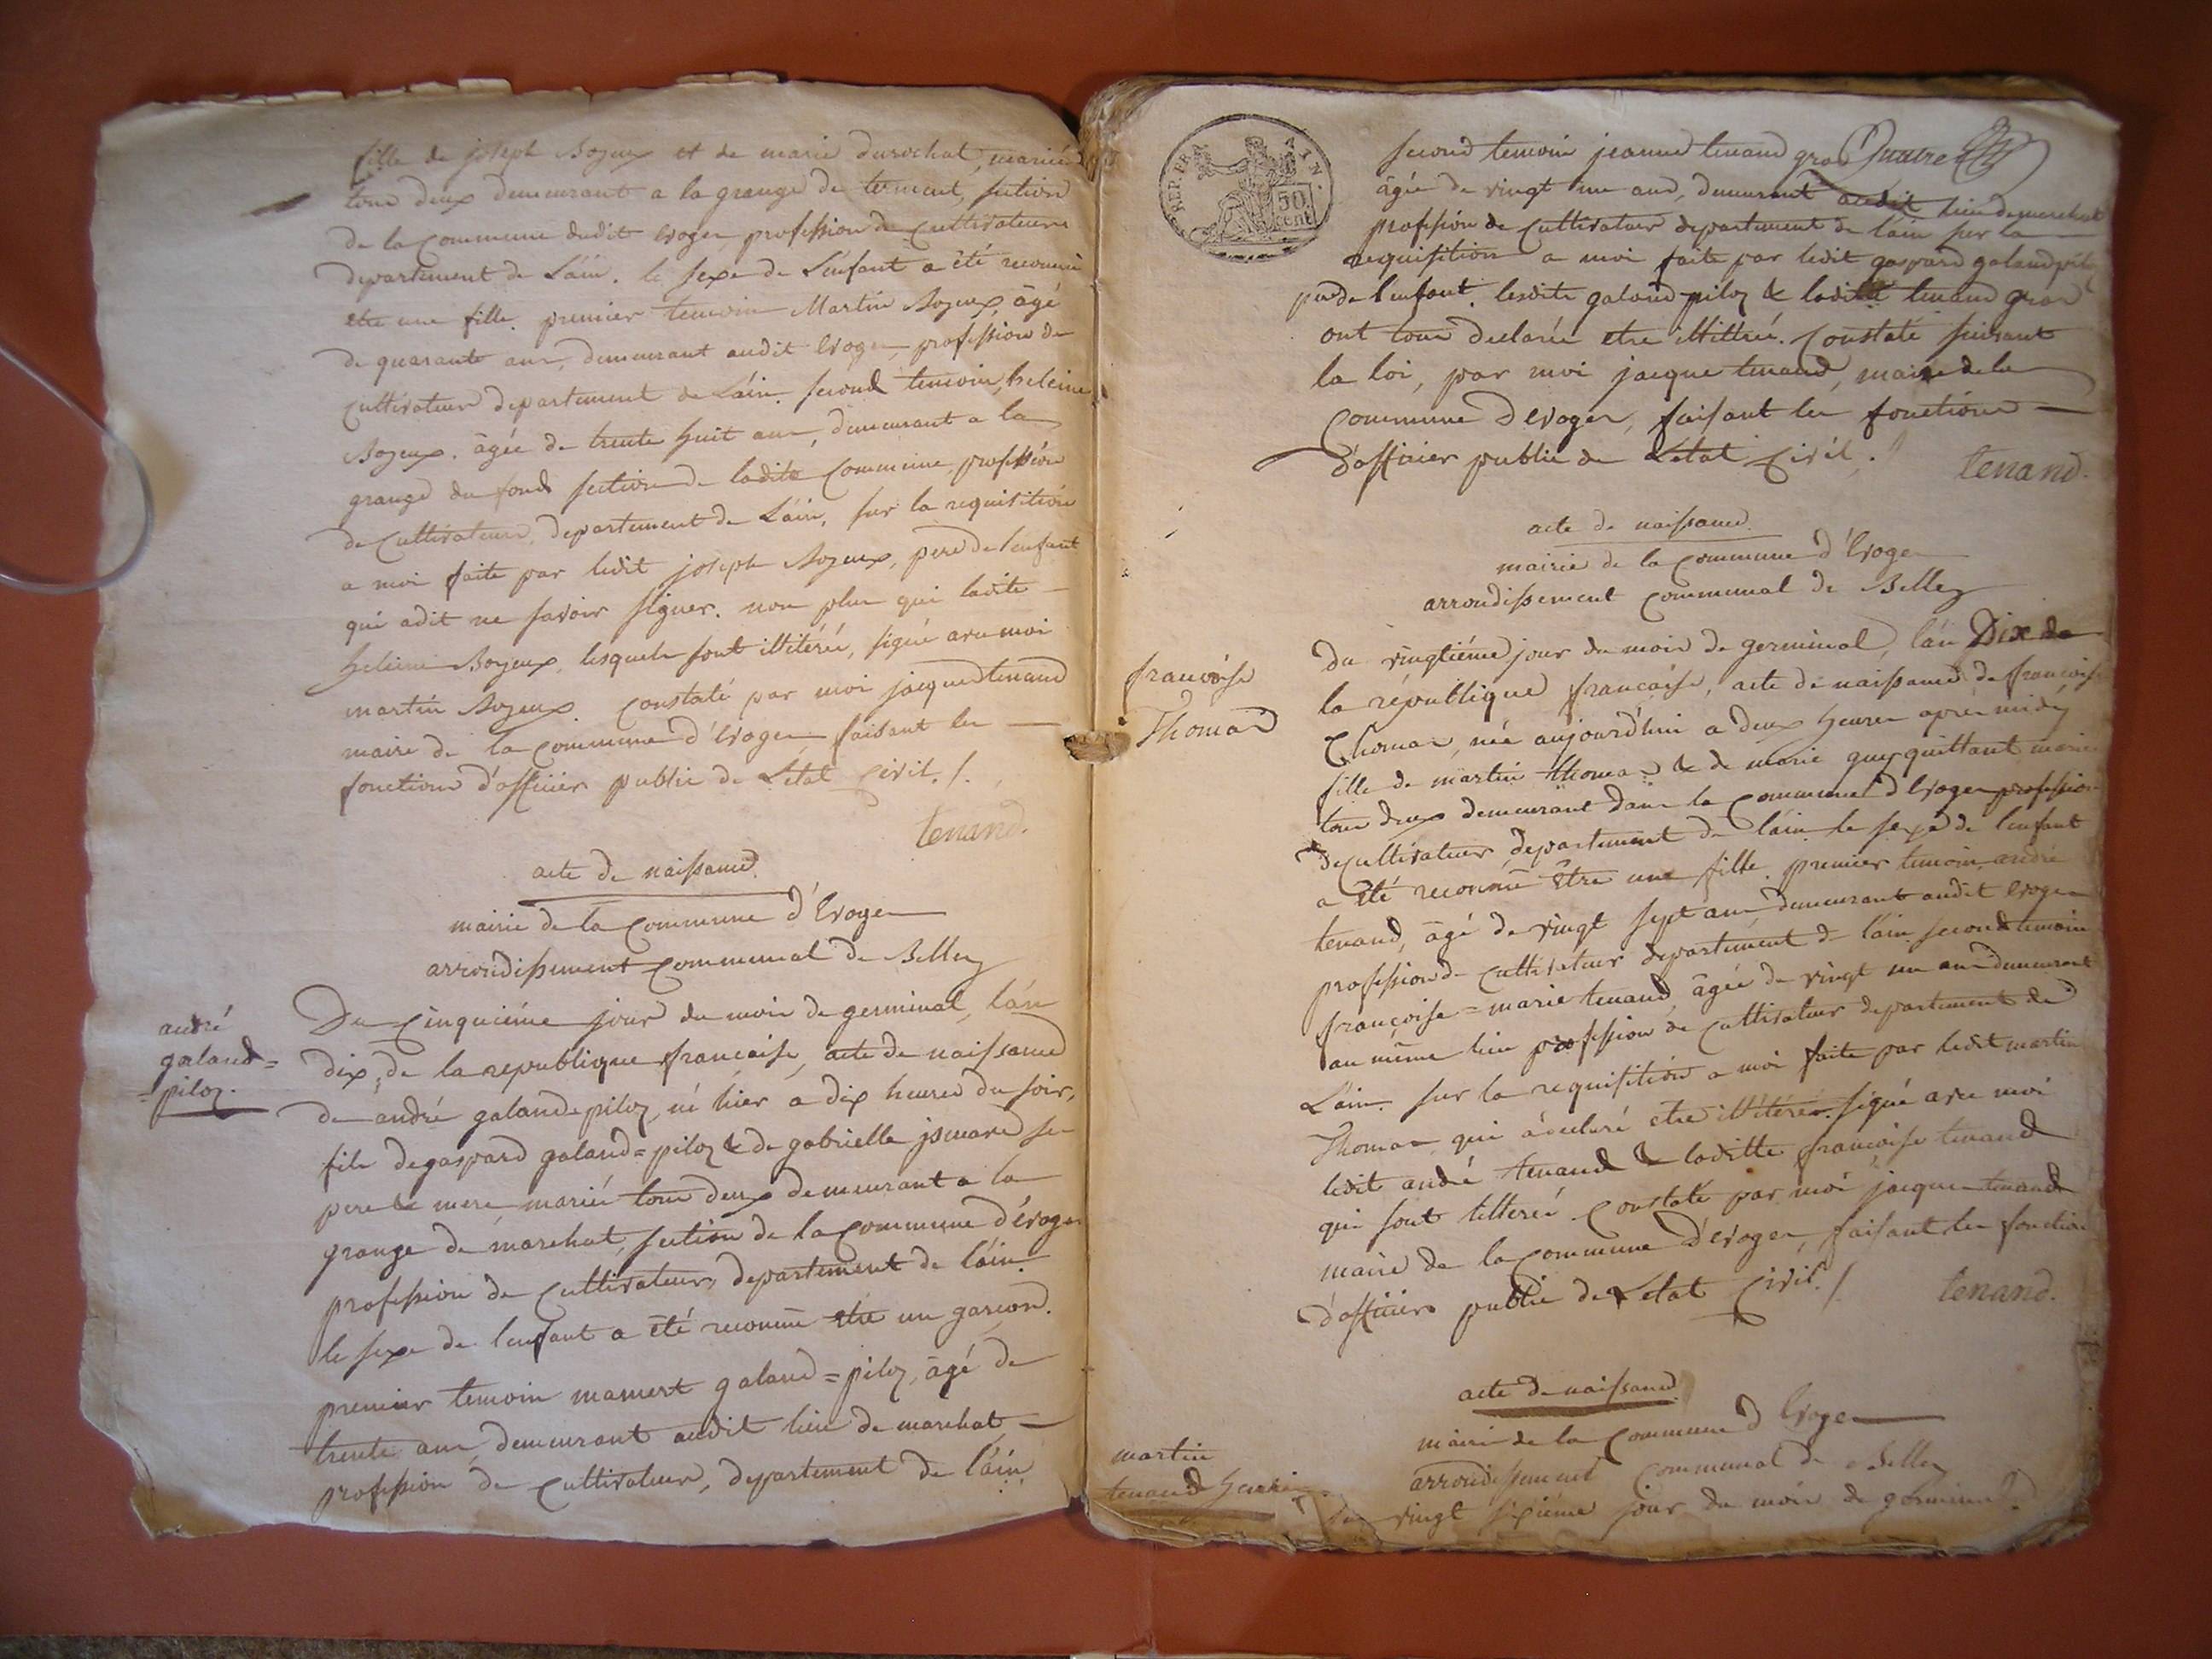 fille de joseph Bozeux et de marie durochat, mariés
tous deux demeurant a la grange de terment, section
de la commune dudit Evoges profession de cultivateurs
departement de Láin. le sexe de L'enfant a été reconnu
etre une fille. premier temoin Martin Bozeux, âgé
de quarante ans, demeurant audit Evoges, profession de
cultivateur departement de Láin. second temoin, heleine
Bozeux. âgée de trente huit ans, demeurant a la
grange du fond section de ladite commune, profession
de cultivateur, departement de Láin, sur la requisition
a moi faite par ledit joseph Bozeux, pere de l'enfant
qui a dit ne savoir signer. non plus qui ladite
heleine Bozeux, lesquels sont illitérés, signé avec moi
martin Bozeux. constaté par moi jacques tenand
maire de la commune d'Evoges faisant les
fonctions d'officier public de L'etat civil. /.
tenand.
acte de naissance.
mairie de la commune d'Evoges
arrondissement communal de Belley
andré
galand=
=piloz.
Du cinquiéme jour du mois de germinal, lán
dix, de la republique francaise, acte de naissance
de andré galand=piloz, né hier a dix heures du soir,
fils de gaspard galand=piloz & de gabrielle jsmard ses
pere & mere mariés tous deux demeurant a la
grange de marchat, section de la commune d'évoges
profession de cultivateurs, departement de láin.
le sexe de l'enfant a été reconnu etre un garcon.
premier temoin mamert galand=piloz, âgé de
trente ans, demeurant audit lieu de marchat
profession de cultivateur, departement de láin
REP. FRA. 50 cent AIN.
Quatre
second temoin jeanne tenand gras
âgée de vingt un ans, demeurant audit lieu de marchat
profession de cultivateur departement de láin sur la
requisition a moi faite par ledit gaspard galand piloz
pere de l'enfant. lesdits galand-piloz & ladite tenand gras
ont tous declarés etre illittrés. Constaté suivant
la loi, par moi jacque tenand, maire de la
commune d'Evoges, faisant les fonctions
d'officier public de L'etat civil. //
tenand.
acte de naissance.
mairie de la commune d'Evoges
arrondissement communal de Belley
francoise
Thomas
Du vingtiéme jour du mois de germinal, lán Dix de
la république francaise, acte de naissance de francoise
Thomas, née aujourd'hui a deux heures après midy
fille de martin thomas & de marie guyquittant mariés
tous deux demeurant dans la commune d'Evoges profession
de cultivateur departement de láin le sexe de l'enfant
a été reconnu être une fille. premier temoin andré
tenand, âgé de vingt sept ans, demeurant audit evoges
profession de cultivateur departement de láin second temoin
françoise=marie tenand, âgée de vingt un ans demeurant
au même lieu profession de cultivateur departement de
Láin. sur la requisition a moi faite par ledit martin
Thomas qui a declaré etre illitéré. signé avec moi
ledit andré tenand & laditte francoise tenand
qui sont litterés. constaté par moi jacques tenand
maire de la commune d'Evoges, faisant les fonctions
d'officier public de L'etat civil. /.
tenand.
acte de naissance
mairie de la commune d'Evoges
arrondissement communal de Belley
martin
tenand
Du vingt sixieme jour du mois de germinal